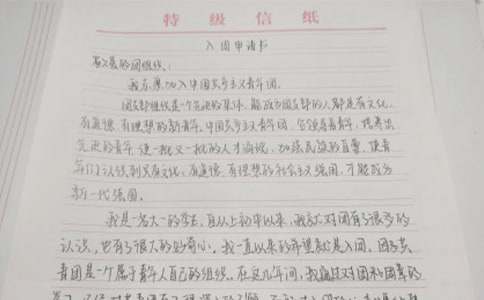 特级信纸
入团申请书
敬爱的团组织：
我志愿加入中国共产主义青年团。
团支部组织是一个先进的集体，能成为团支部的人都是有文化、
有道德、有理想的新青年。中国共产主义青年团，
先进的青年，使一批又一批的人才涌现，加强民族的自尊，使青
年们认识到只有文化、有道德、有理想的社会主义强国，才能成为
新一代强国。
我是一名大一的学生，自从上初中以来，我就对团有了很多的
认识，也有了很大的好奇心。我一直以来的希望就是入团。因为共
青团是一个属于青年人自己的组织。在这几年间，我通过对团和团章的